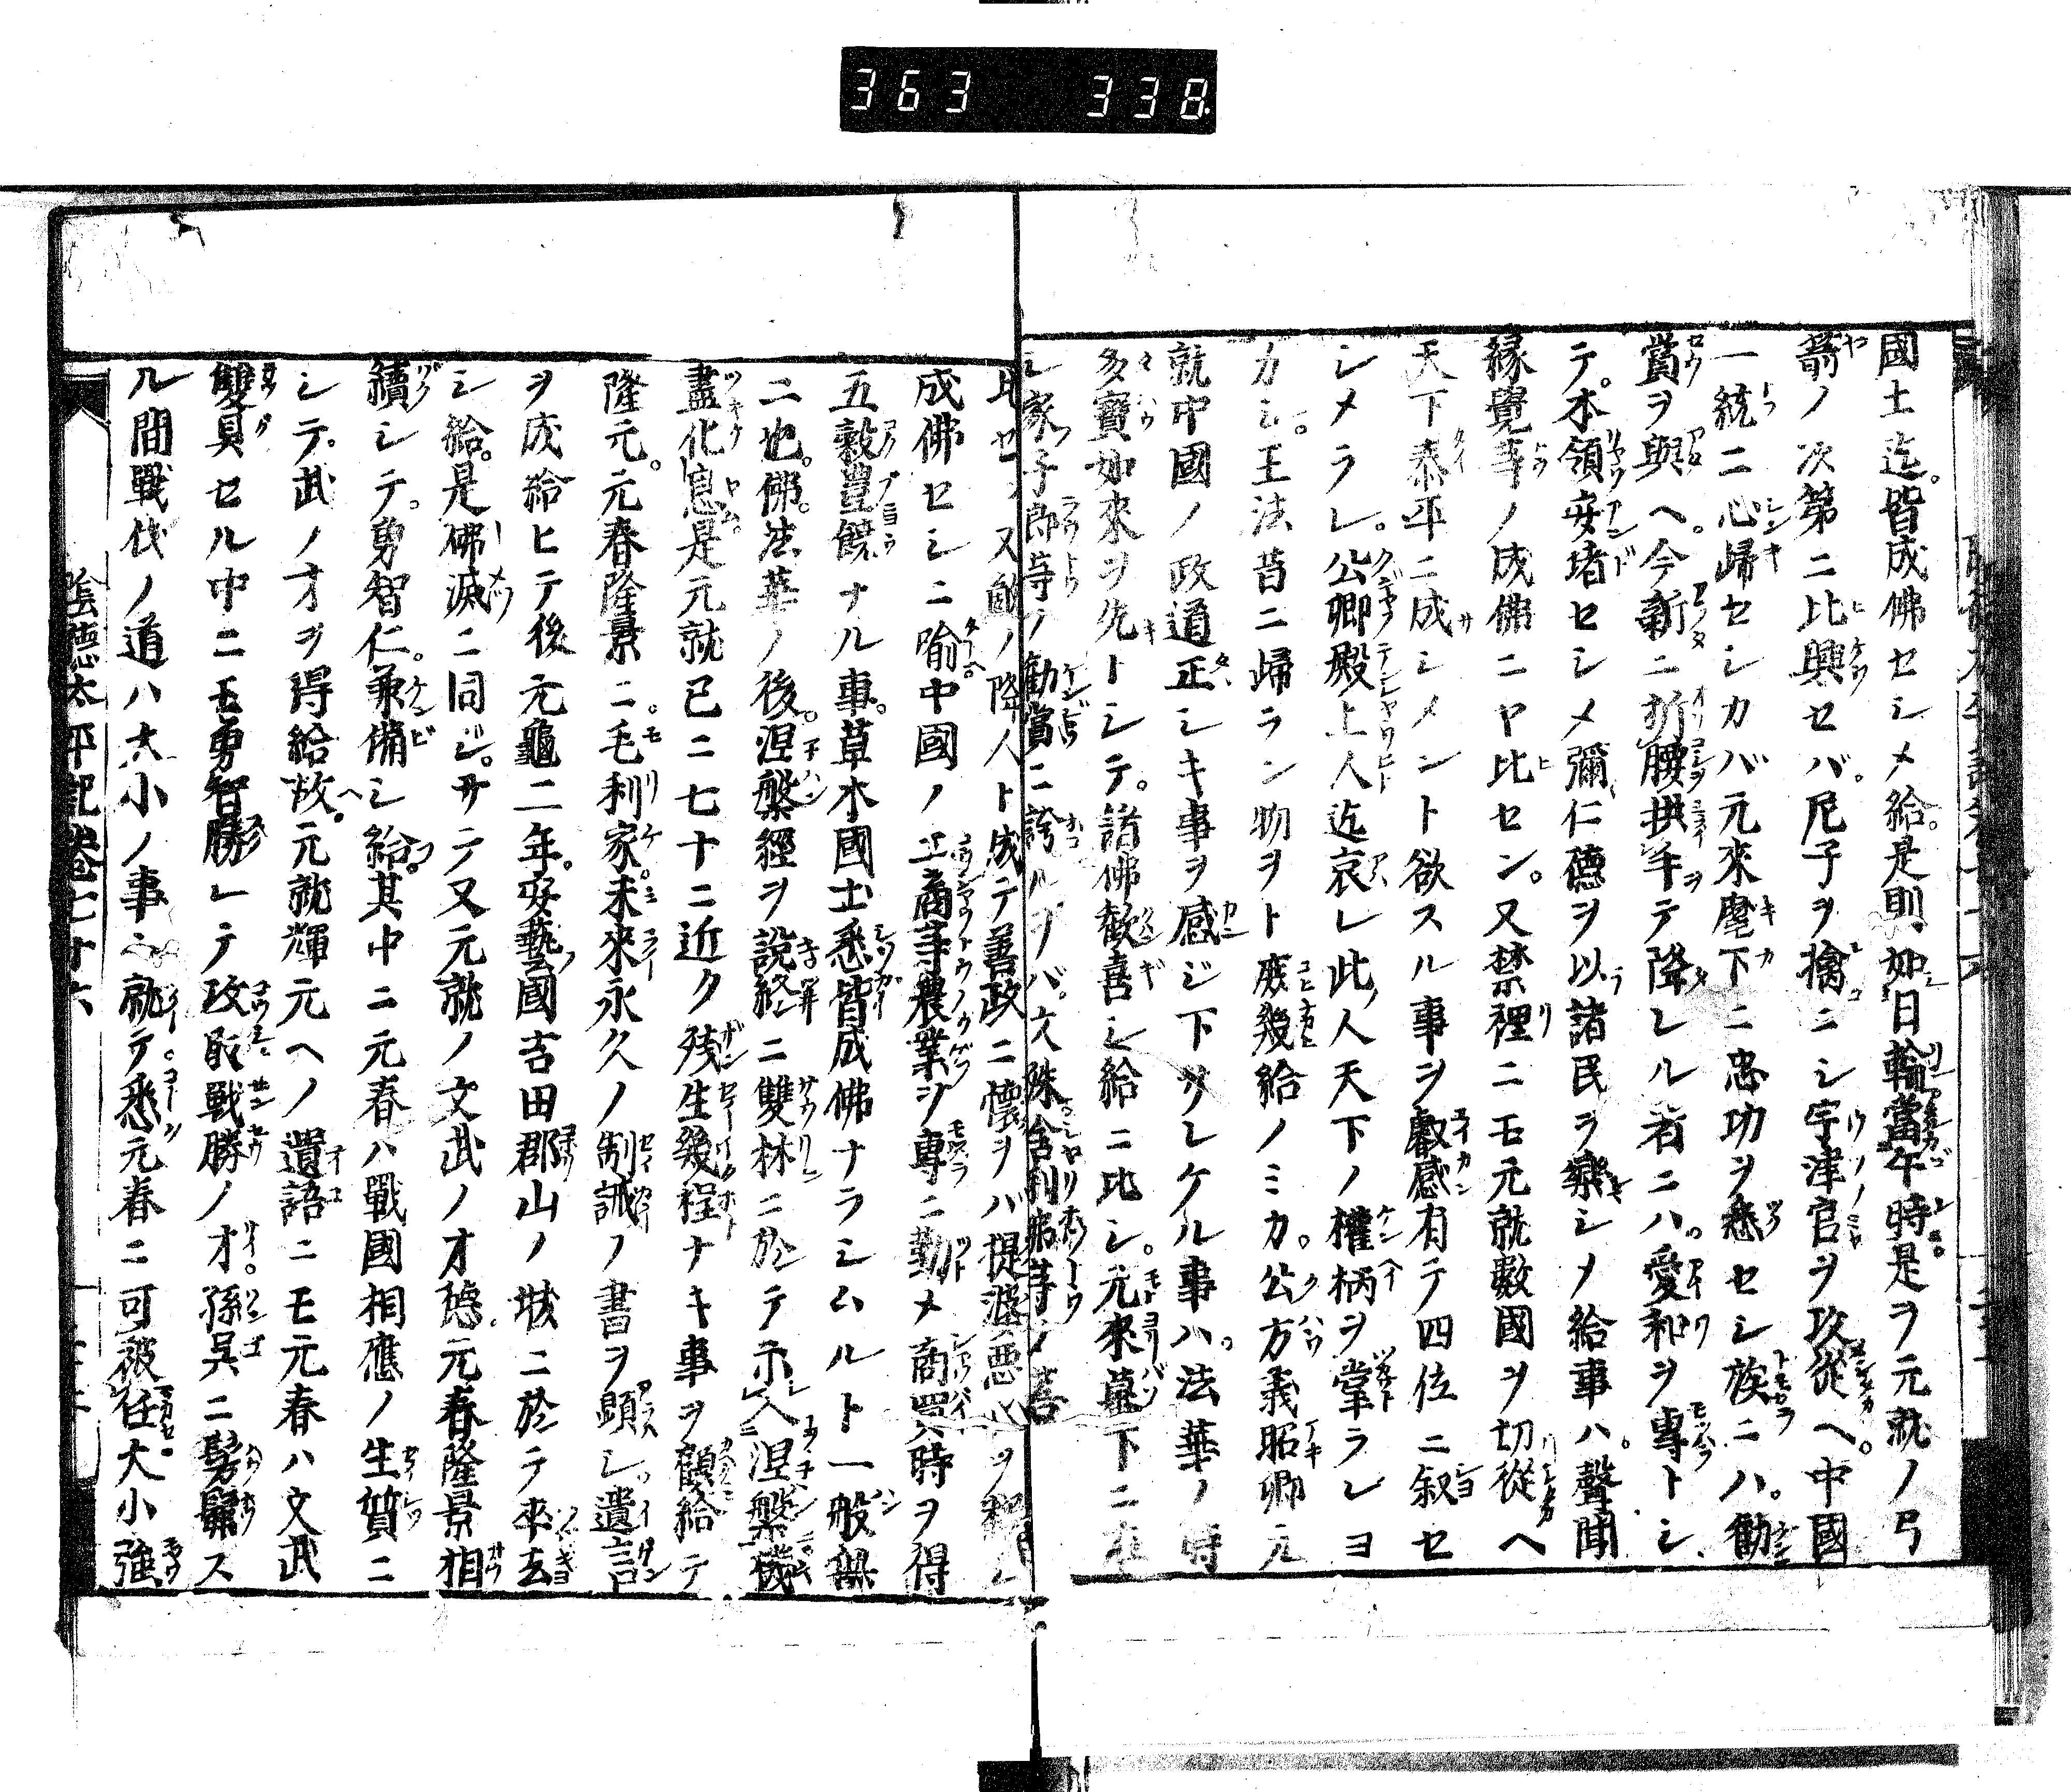 363 338
國土迄。皆成佛セシメ給。是則如日輪當午時是ヲ元就ノ弓
箭ノ次第ニ比興セバ。尼子ヲ擒ニシ宇津宮ヲ攻從ヘ。中國
一統ニ心歸セシカバ元來麾下ニ忠功ヲ悉セシ族ニハ。勸
賞ヲ與ヘ。今新ニ折腰拱手テ降レル者ニハ。愛和ヲ專トシ
テ。本領安堵セシメ彌仁德ヲ以諸民ヲ樂シメ給事ハ。聲聞
緣覺等ノ成佛ニヤ比セン。又禁裡ニモ元就數國ヲ切從ヘ
天下泰平ニ成シメント欲スル事ヲ叡感有テ四位ニ叙セ
シメラレ。公卿殿上人迄哀レ此人天下ノ權柄ヲ掌ラレヨ
カシ。王法昔ニ歸ラン物ヲト庶幾給ノミカ。公方義昭卿元
就中國ノ政道正シキ事ヲ感ジ下サレケル事ハ。法華ノ時
多寶如來ヲ先トシテ。諸佛歡喜シ給ニ比シ。元來幕下ニ在
シ家子郎等ノ勸賞ニ誇ルヲバ。文殊舍利弗等ノ菩
比セ又敵ノ降人ト成テ善政ニ懷ヲバ提婆惡
成佛セシニ喻。中國ノ工商等農業ヲ專ニ勤メ商買時ヲ得
五穀豐饒ナル事。草木國土悉皆成佛ナラシムルト一般無
二也。佛。法華ノ後。涅槃經ヲ說終ニ雙林ニ於テ示入涅槃機
盡化息。是元就已ニ七十ニ近ク殘生幾程ナキ事ヲ顧給テ
隆元。元春隆景ニ。毛利家。未來永久ノ制誡ノ書ヲ顯シ。遺言
ヲ成給ヒテ後元龜二年。安藝國吉田郡山ノ城ニ於テ卒去
シ給。是佛滅ニ同ジ。サテ又元就ノ文武ノ才德。元春隆景相
續シテ。勇智仁。兼備シ給。其中ニ元春ハ戰國相應ノ生質ニ
シテ。武ノ才ヲ得給故。元就輝元ヘノ遺語ニモ元春ハ文武
雙具セル中ニモ勇智勝レテ攻取戰勝ノ才。孫吳ニ髣髴ス
ル間戰伐ノ道ハ大小ノ事ニ就テ悉元春ニ可被任大小強
陰德太平記卷七十六